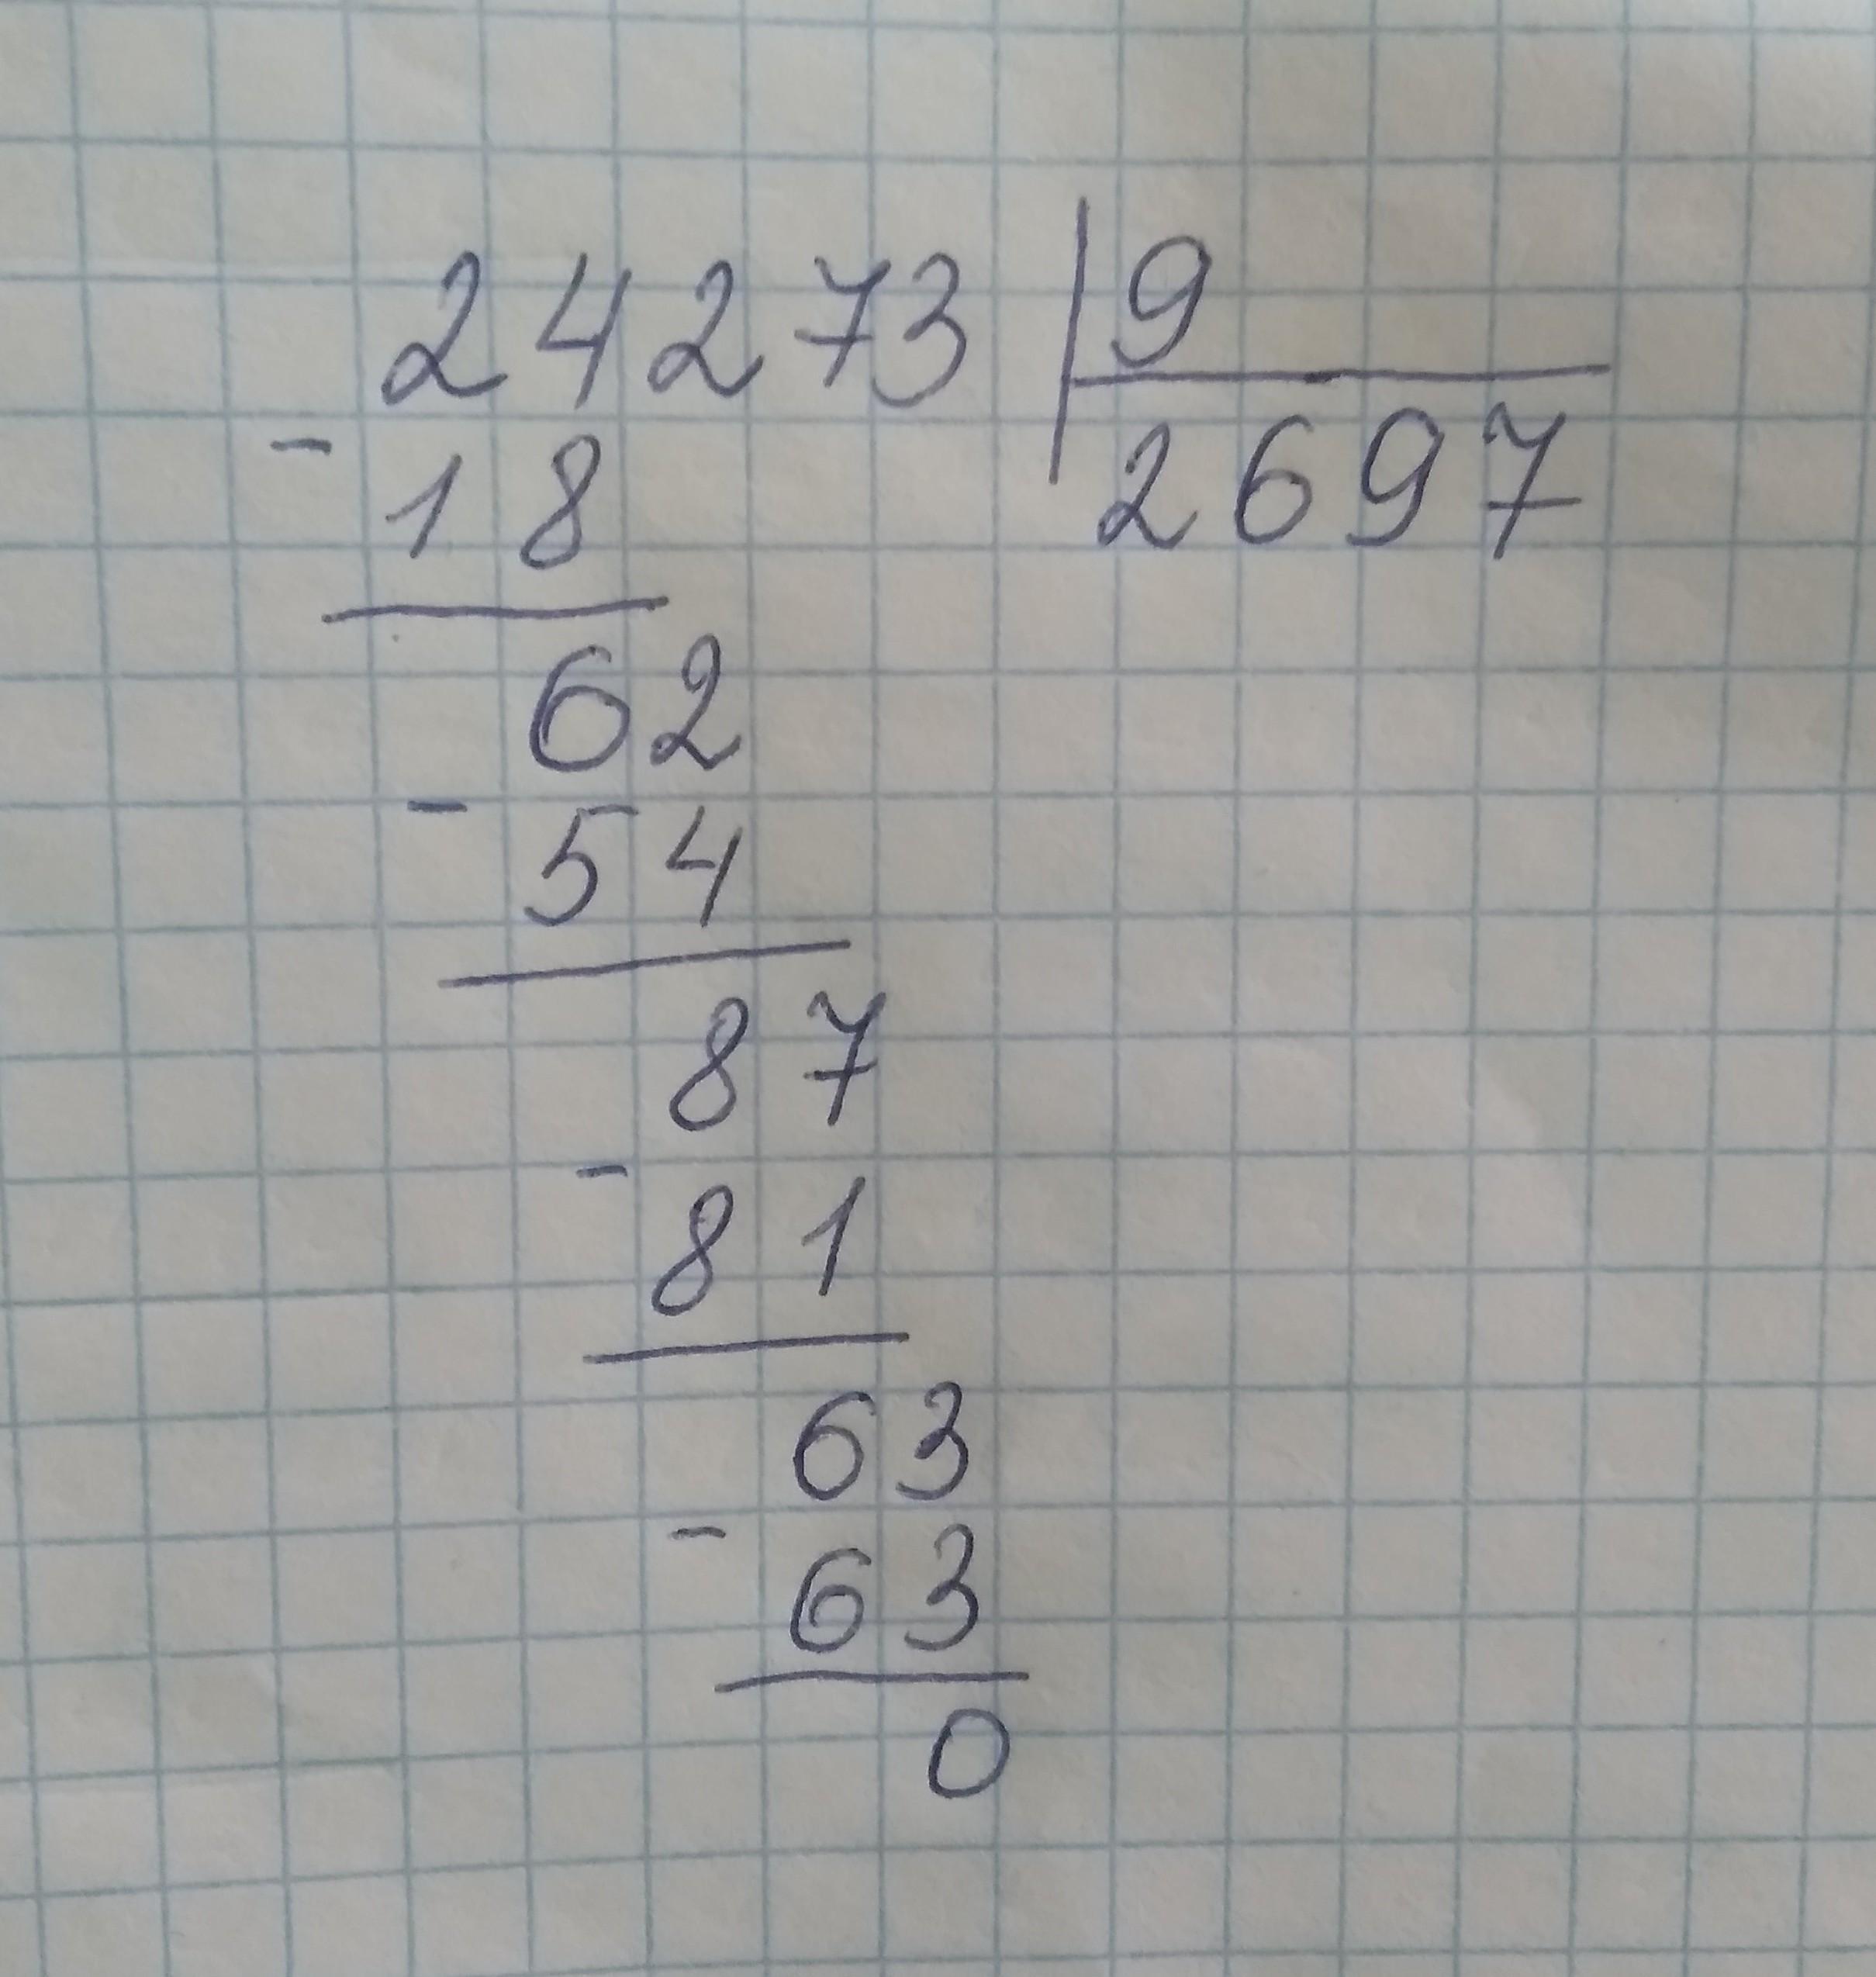 24273 9
- 18 2697
62
- 54
87
- 81
63
- 63
0